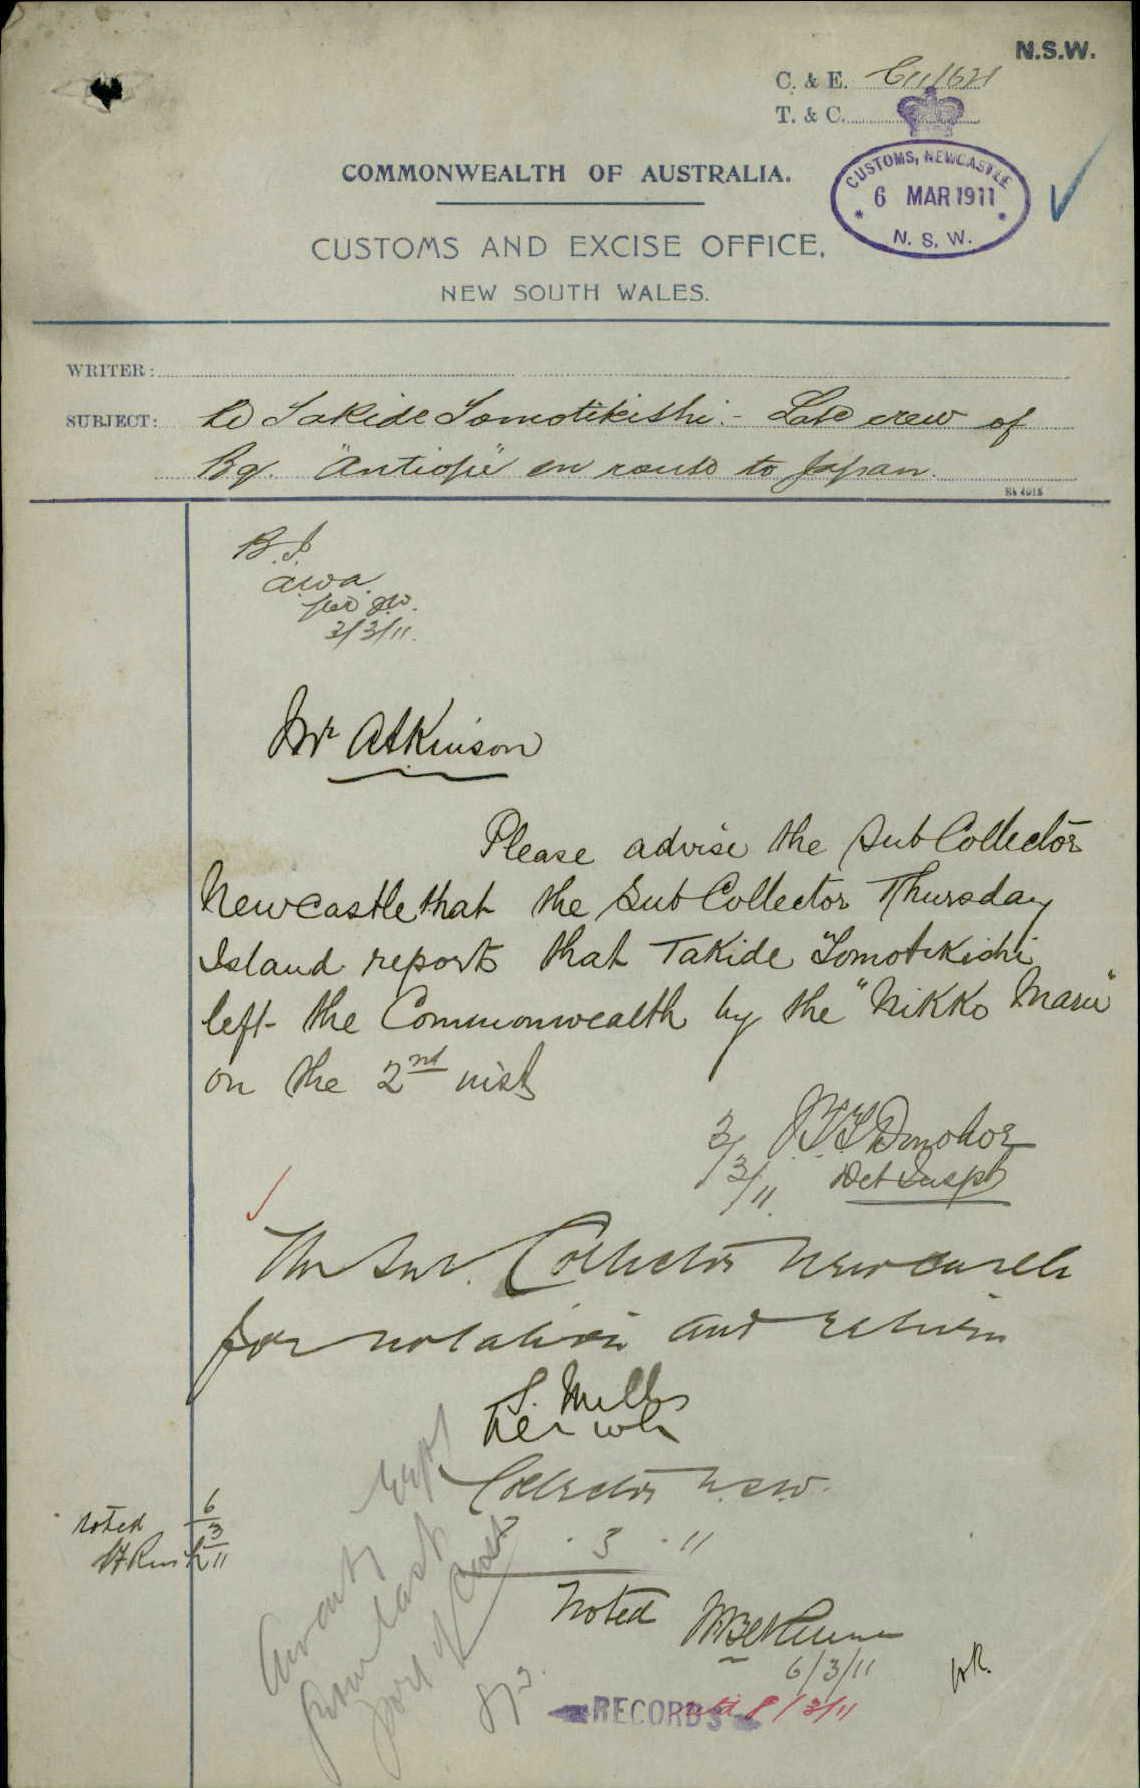 N.S.W.
C. & E. C11/621
T. & C.
COMMONWEALTH OF AUSTRALIA.
CUSTOMS, NEWCASTLE
6 MAR 1911
N. S. W.
CUSTOMS AND EXCISE OFFICE,
NEW SOUTH WALES.
WRITER:
SUBJECT: Re Takide Tomotikishi - Late crew of
Bq. "Antiope" en route to Japan.
B.I.
a.w.a.
per
3/3/11.
Mr Atkinson
Please advise the Sub Collector
Newcastle that the Sub Collector Thursday
Island reports that Takide Tomotikishi
left the Commonwealth by the "Nikko Maru"
on the 2nd inst
3/3/11. Donohoe
Det Inspr
The Sub. Collector Newcastle
for notation and return
S. Mills
Per
Collector N.S.W.
3 . 11
Noted 6/3/11
Noted
6/3/11
Await rept
from last
port of Coast
8/3.
RECORDS
8/3/11